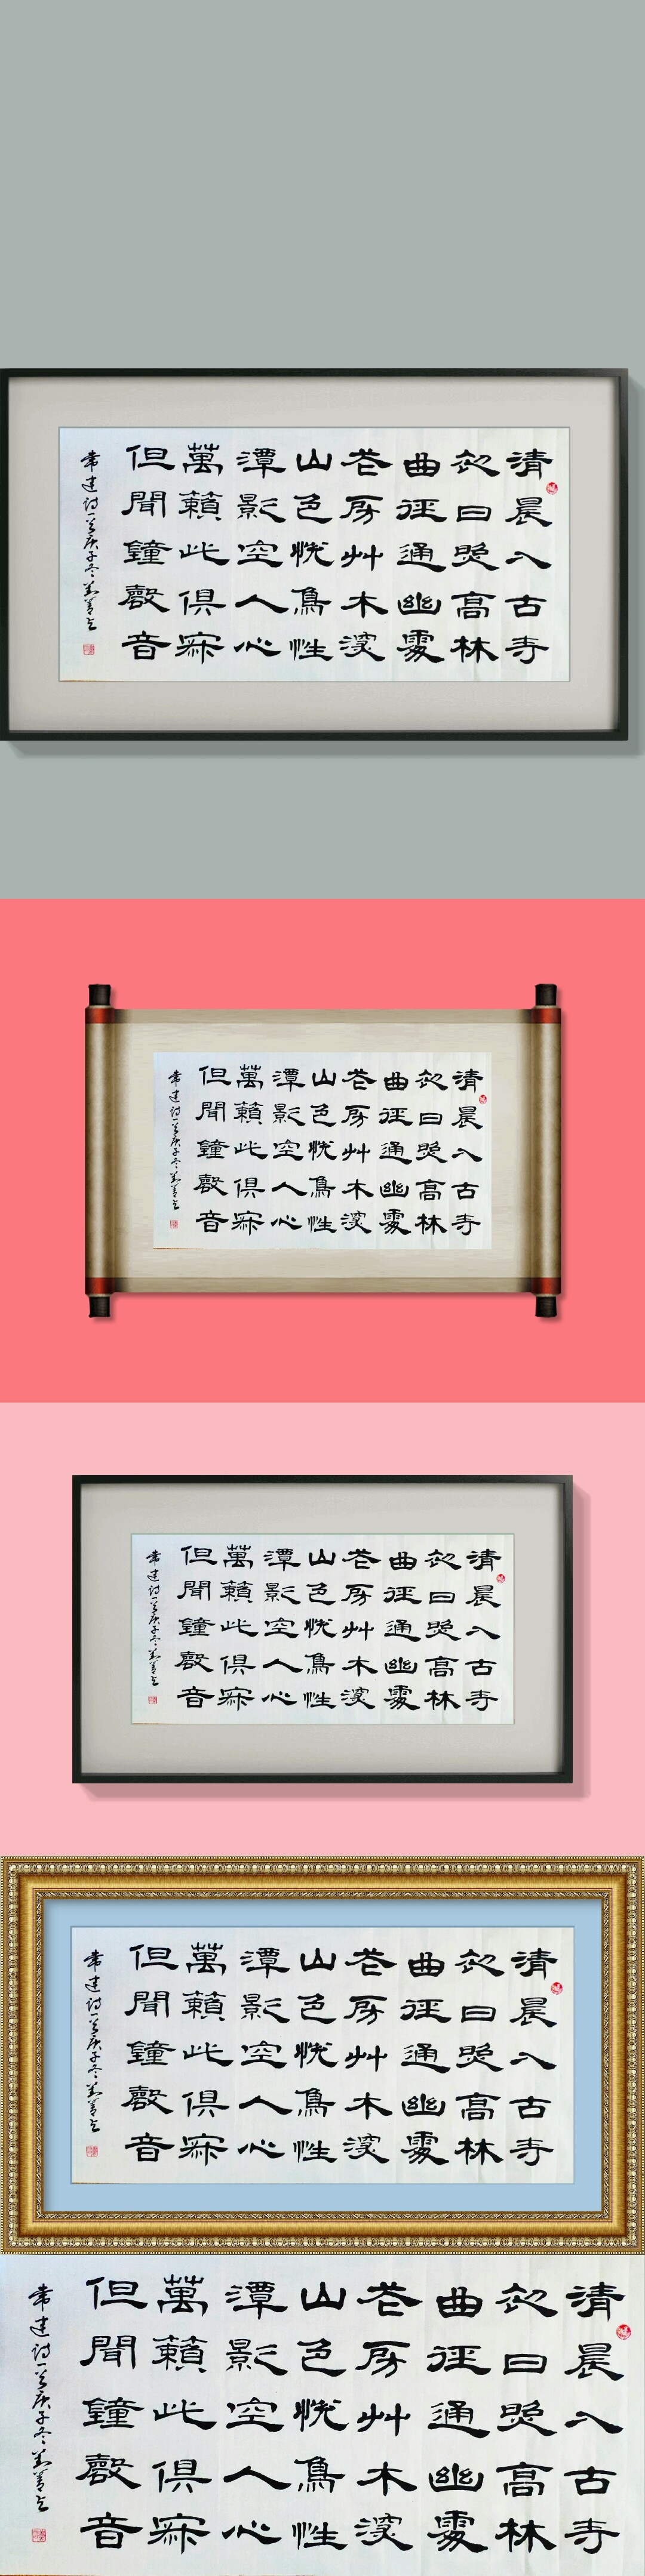 清晨入古寺
初日照高林
曲徑通幽處
花房艸木深
山色悦鳥性
潭影空人心
萬籟此俱寂
但聞鐘磬音
常建诗一首庚子冬
清晨入古寺
初日照高林
曲徑通幽處
花房艸木深
山色悦鳥性
潭影空人心
萬籟此俱寂
但聞鐘磬音
常建诗一首庚子冬
清晨入古寺
初日照高林
曲徑通幽處
花房艸木深
山色悦鳥性
潭影空人心
萬籟此俱寂
但聞鐘磬音
常建诗一首庚子冬
清晨入古寺
初日照高林
曲徑通幽處
花房艸木深
山色悦鳥性
潭影空人心
萬籟此俱寂
但聞鐘磬音
常建诗一首庚子冬
清晨入古寺
初日照高林
曲徑通幽處
花房艸木深
山色悦鳥性
潭影空人心
萬籟此俱寂
但聞鐘磬音
常建诗一首庚子冬